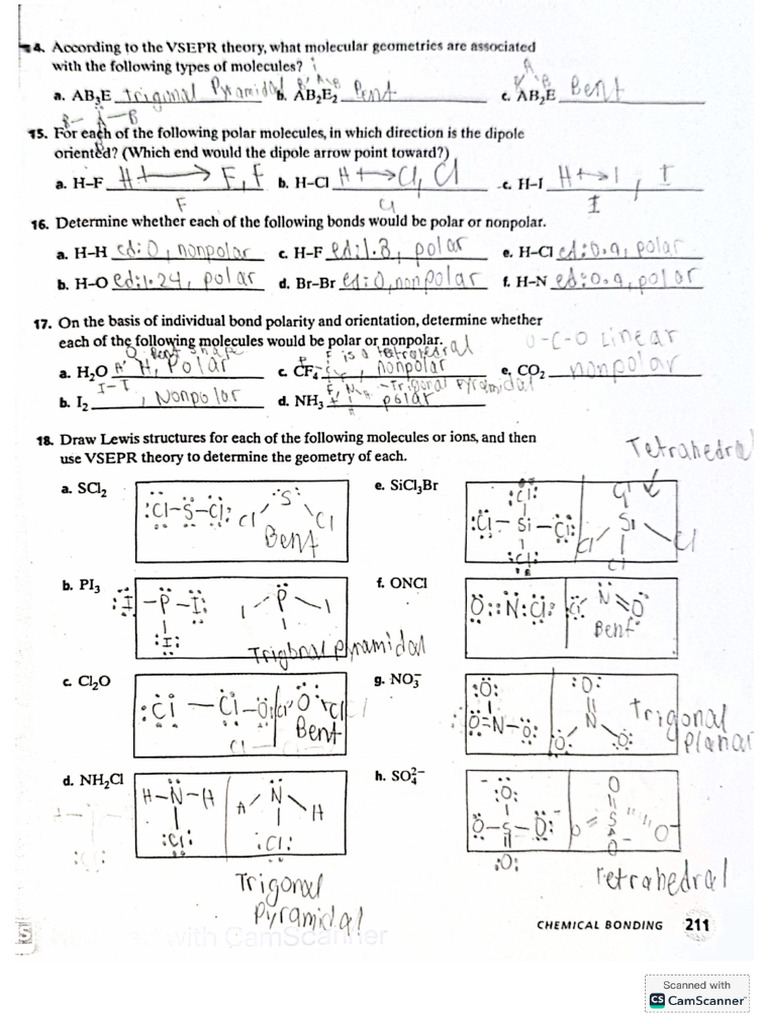 14. According to the VSEPR theory, what molecular geometries are associated
with the following types of molecules?
a. AB₃E Trigonal Pyramidal b. AB₂E₂ Bent c. AB₂E Bent
B- A-B
15. For each of the following polar molecules, in which direction is the dipole
oriented? (Which end would the dipole arrow point toward?)
a. H–F H ⟶ F, F b. H–Cl H ⟶ Cl, Cl c. H–I H ⟶ I, I
F Cl I
16. Determine whether each of the following bonds would be polar or nonpolar.
a. H–H ed:0, nonpolar c. H–F ed:1.8, polar e. H–Cl ed:0.9, polar
b. H–O ed:1.24, polar d. Br–Br ed:0, nonpolar f. H–N ed:0.9, polar
17. On the basis of individual bond polarity and orientation, determine whether
each of the following molecules would be polar or nonpolar.
O-C-O Linear
Bent shape F is a tetrahedral
a. H₂O H, Polar c. CF₄ nonpolar e. CO₂ nonpolar
I-I -Trigonal Pyramidal
b. I₂ , Nonpolar d. NH₃ polar
18. Draw Lewis structures for each of the following molecules or ions, and then
use VSEPR theory to determine the geometry of each.
Tetrahedral
a. SCl₂ :Cl-S-Cl: S Cl Cl Bent
e. SiCl₃Br :Cl: :Cl-Si-Cl: :Cl: Cl Si Cl Cl Cl
b. PI₃ :I-P-I: :I: I-P-I I Trigonal pyramidal
f. ONCl O::N:Cl: Cl N=O Bent
c. Cl₂O :Cl-Cl-O: Cl O Cl Bent
g. NO₃⁻ :O: O=N-O: :O: N O: O: Trigonal Planar
d. NH₂Cl H-N-H :Cl: H N H :Cl: Trigonal Pyramidal
h. SO₄²⁻ :O: O-S-O: :O: O S O O⁻ O Tetrahedral
CHEMICAL BONDING 211
Scanned with CamScanner
Scanned with
CS CamScanner